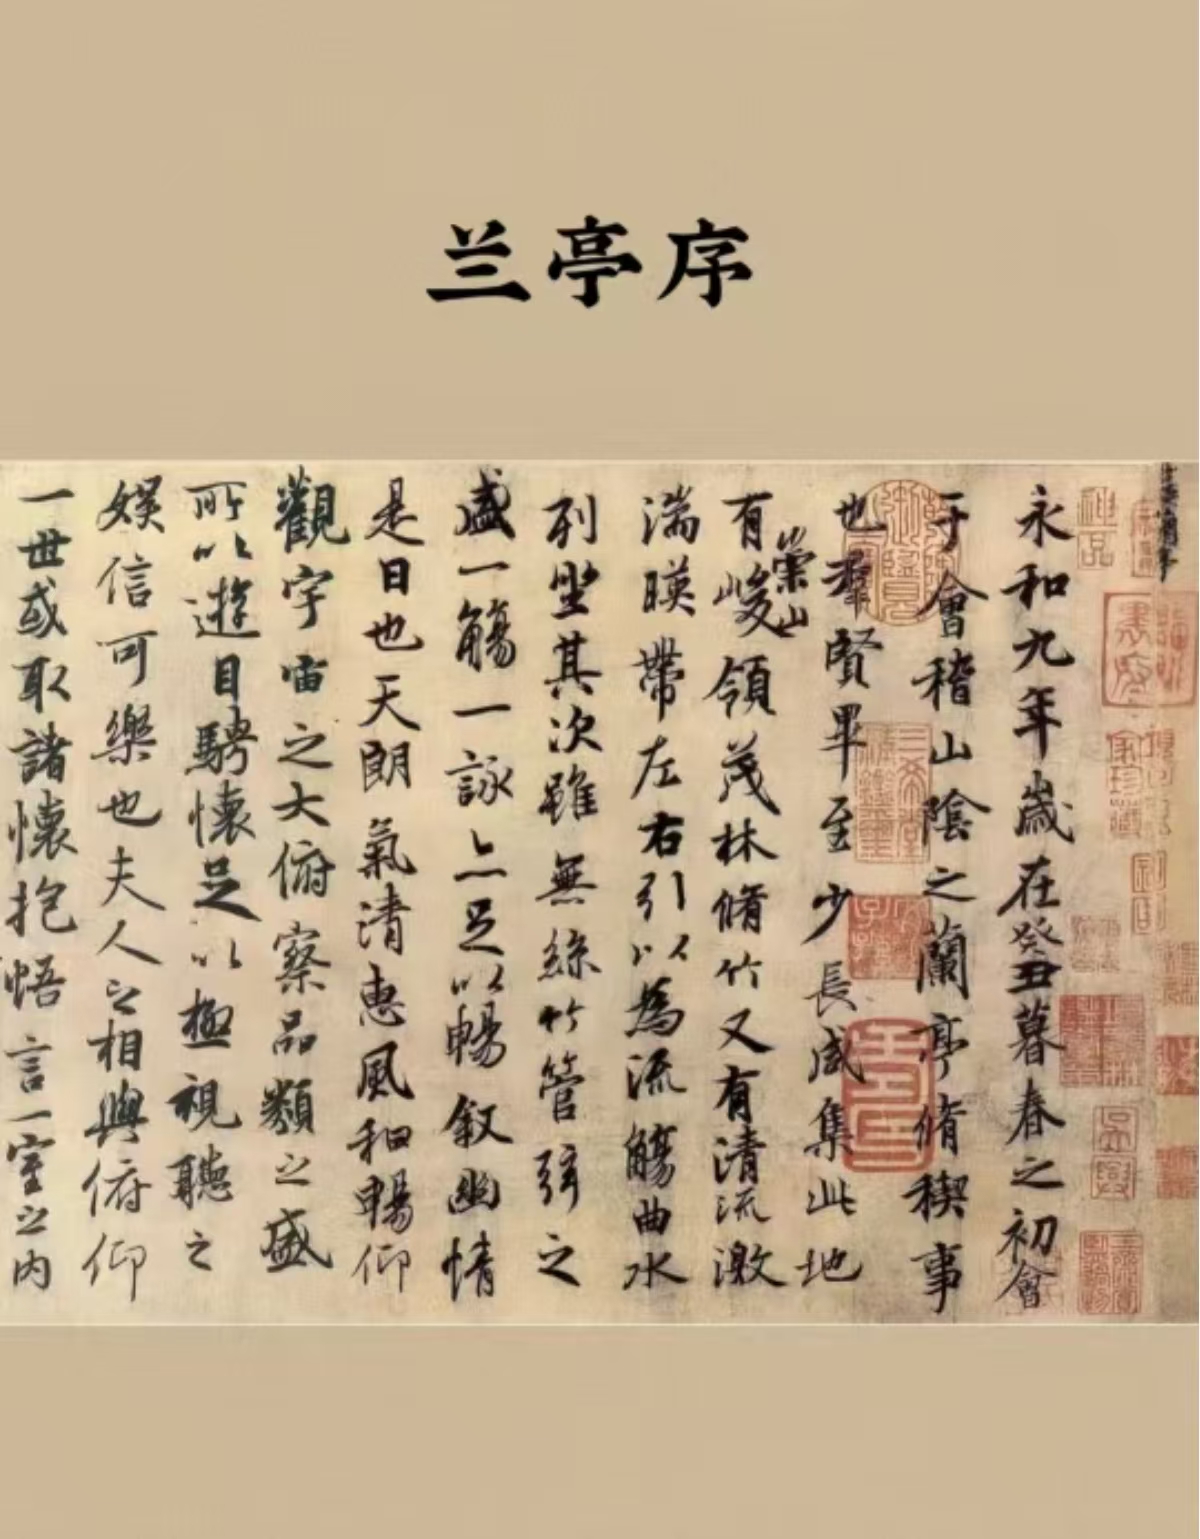 兰亭序
永和九年歲在癸丑暮春之初會
于會稽山陰之蘭亭脩稧事
也羣賢畢至少長咸集此地
有崇山峻領茂林脩竹又有清流激
湍暎帶左右引以為流觴曲水
列坐其次雖無絲竹管弦之
盛一觴一詠亦足以暢叙幽情
是日也天朗氣清惠風和暢仰
觀宇宙之大俯察品類之盛
所以遊目騁懷足以極視聽之
娛信可樂也夫人之相與俯仰
一世或取諸懷抱悟言一室之內